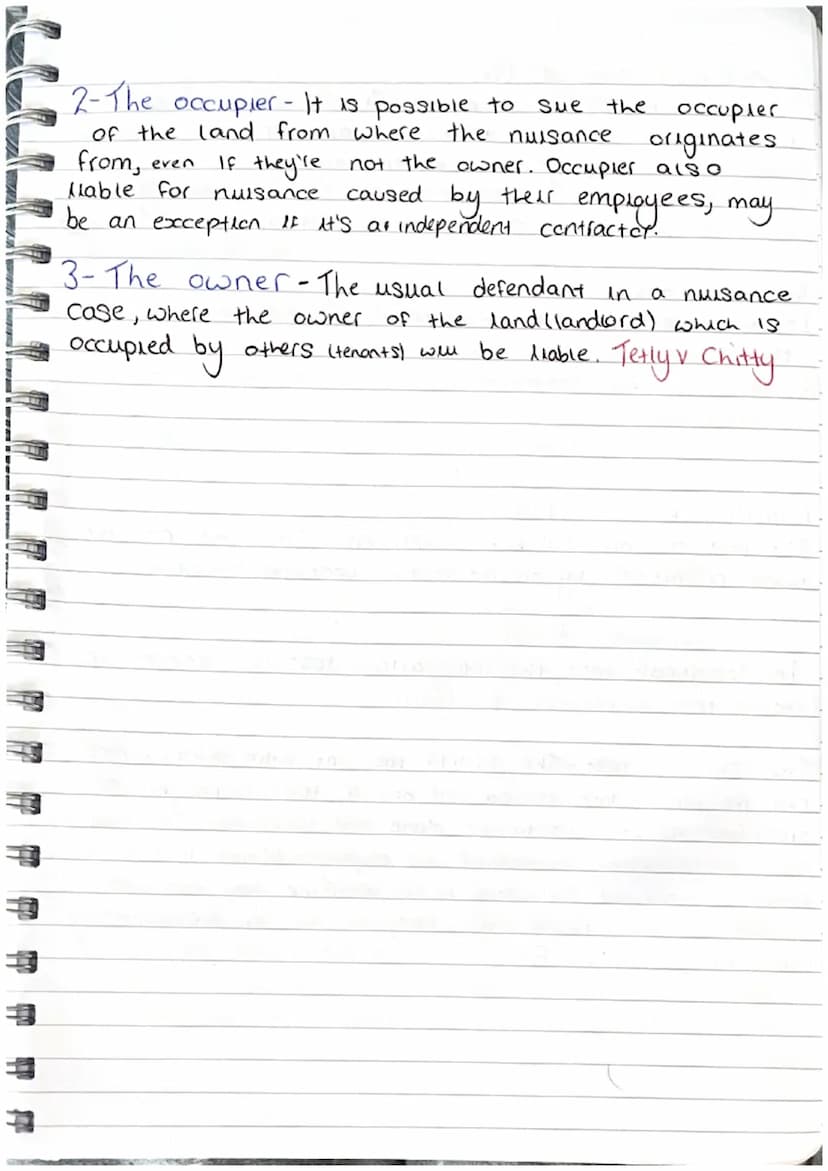 2-The occupier - It is possible to sue the occupier
of the land from where the nuisance originates
from, even if they're not the owner. Occupier also
liable for nuisance caused by their employees, may
be an exception if it's an independent contractor.
3- The owner - The usual defendant in a nuisance
case, where the owner of the land (landlord) which is
occupied by others (tenants) will be liable. Tetly v Chitty